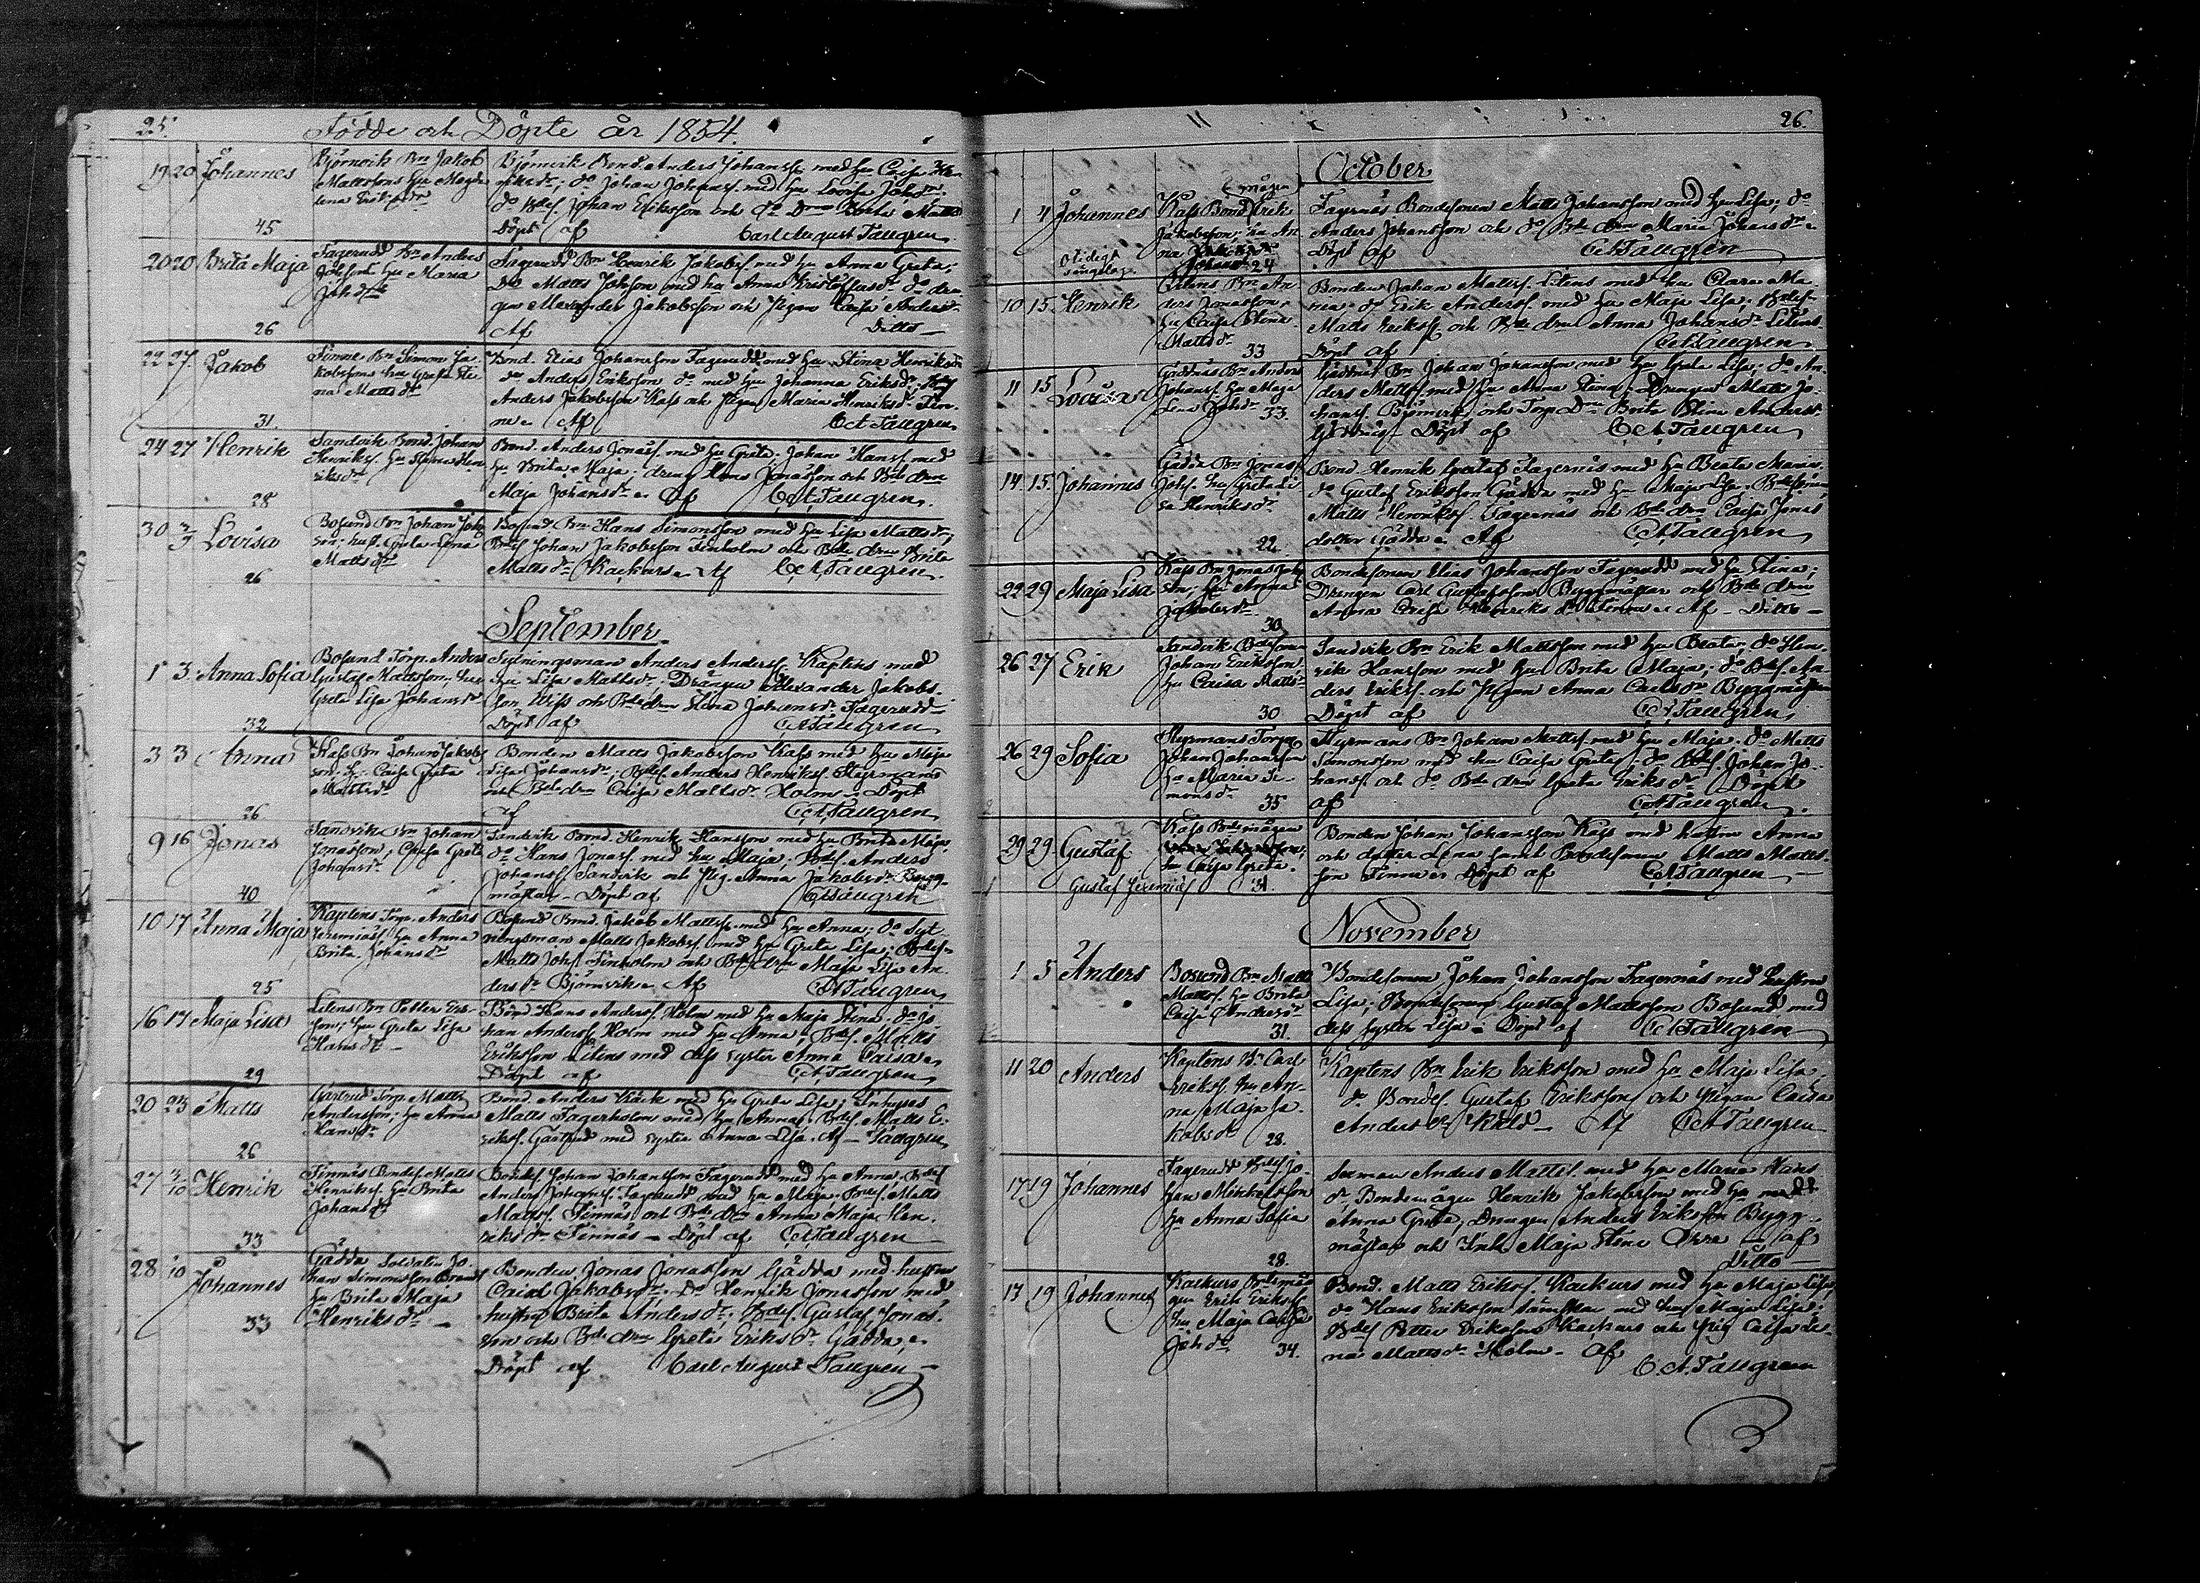 25.
Födde och Döpte år 1854.
19 20 Johannes
Björnvik Bn Jakob
Mattssons hu Magda
lena
45
Björnvik Bond. Anders Johanss. med hu Caisa
do Johan Johanss. med hu Lovisa Johsdr
do Bdes. Johan Eriksson och do Brita Matts
Döpt af Carl August Tallgren
20 20 Brita Maja
Fagerudd Bn Anders
Johsson hu Maria
Johsdr
26
Fagerudd Bn Henrik Jakobss. med hu Anna Greta;
Do Matts Johsson med hu Anna Kristoffersdr do drän
gen Alexander Jakobsson och Pigan Caisa Andersdr
Af Ditto
22 27. Jakob
Finne Bn Simon Ja
kobssons hu Greta Sti
na Mattsdr
31
Bond. Elias Johansson Fagerudd med hu Stina Henriksdr
do Anders Eriksson do med hu Johanna Eriksdr
Anders Jakobsson Kass och Pigan Maria Henriksdr Fin
ne. Af C A Tallgren
24 27 Henrik
Sandvik Bond. Johan
Henrikss. hu Hen
riksdr
28
Bond. Anders Jonass. med hu Greta. Johan Hanss. med
hu Brita Maja; dreng Hans Jonasson och Bde drn
Maja Johansdr Af C A Tallgren.
30 3/9 Lovisa
Bosund Bn Johan Joh
son; hust. Greta Lena
Mattsdr
26
Bosund Bn Hans Simonsson med hu Lisa Mattsdr;
Bdes Johan Jakobsson Finholm och Bde drn Brita
Mattsdr Kackurs. Af C A Tallgren.
September
1 3. Anna Sofia
Bosund Torp. Anders
Gustaf Mattsson; hu
Greta Lisa Johansdr
32
Sytningsman Anders Anderss. Kaptens med
hu Lisa Mattsdr; Drängen Alexander Jakobs-
son och Bde drn Stina Johansdr Fagerudd
Döpt af C A Tallgren
3 3 Anna
Kass Bn Johan Jakobs
son, hu Caisa Greta
Mattsdr
26
Bonden Matts Jakobsson Kass med hu Maja
Lisa Johansdr; Bdes. Anders Henrikss. Styrmans
och Bde drn Caisa Mattsdr Holm. Döpt
af C A Tallgren
9 16 Jonas
Sandvik Bn Johan
Jonasson; Caisa Greta
Johansdr
40
Sandvik Bond. Henrik Hansson med hu Brita Maja,
do Hans Jonass. med hu Maja; Bdes. Anders
Johanss. Sandvik och Pig. Anna Jakobsdr Bygg-
mästar. Döpt af C A Tallgren
10 17 Anna Maja
Kaptens Torp. Anders
Jeremiass. hu Anna
Brita Johansdr
25
Bosund Bond. Jakob Mattss. med hu Anna; do Syt
ningsman Matts Jakobss. med hu Greta Lisa; Bdes.
Matts Johs. Finholm och Bde drn Maja Lisa An
dersdr Björnvik. Af C A Tallgren
16 17 Maja Lisa
Litens Bn Petter Eriks
son; hu Greta Lisa
Hansdr
29
Bond Hans Anderss. Holm med hu Maja Stina; do Jo
han Anderss. Holm med hu Anna; Bdes. Matts
Eriksson Litens med dess syster Anna Caisa
Döpt af C A Tallgren
20 23 Matts
Gertrud Torp. Matts
Andersson; hu Anna
Hansdr
26
Bond. Anders Käck med hu Greta Lisa; Inhyses
Matts Fagerholm med hu Anna; Bdes. Matts E-
rikss. med syster Anna Lisa. Af Tallgren
27 3/10 Henrik
Finnäs Bondes. Matts
Henrikss. hu Brita
Johansdr
33
Bondes. Johan Johansson Fagerudd med hu Anna, Bdes
Anders Johanss. Fagerudd med hu Maja. Bdes. Matts
Mattss. Finnäs och Bde drn Anna Maja Hen-
riksdr Finnäs. Döpt af C A Tallgren
28 1/10 Johannes
Gädda Soldaten Jo-
han Simonsson Brandt
hu Brita Maja
Henriksdr
33
Bonden Jonas Jonasson Gädda med hustru
Caisa Jakobsdr. Do Henrik Jonasson med
hustru Brita Andersdr; Bdes. Gustaf Jonas-
son och Bde drn Greta Eriksdr Gädda,
Döpt af Carl August Tallgren
26.
October
1 4 Johannes
mågen
Kass Bond Erik
Jakobsson; hu An
na
Johansdr 24
Fagernäs Bondesonen Matts Johansson med hu Lisa; do
Anders Johansson och do Bde drn Maria Johansdr
Döpt af C A Tallgren
10 15. Henrik
Litens Bn An-
ders Jonasson,
hu Caisa Stina
Mattsdr
33
Bonden Johan Mattss. Litens med hu Clara Ma
ria; do Erik Anderss. med hu Maja Lisa; Bdes.
Matts Erikss. och Bde drn Anna Johansdr Litens
Döpt af C A Tallgren
11 15 Lovisa
Gäddnäs Bn Anders
Johanss. hu Maja
Lena Johsdr
33.
Gäddnäs Bn Johan Johansson med hu Greta Lisa; do An-
ders Mattss. med hu Anna Stina; Drängen Matts Jo-
hanss. Björnvik och Torp. Drn Brita Stina Andersdr
Döpt af C A Tallgren
14 15. Johannes
Gädda Bn Jonas
Johs. hu Greta Li
sa Henriksdr
22.
Bond. Henrik Gustafs Fagernäs med hu Beata Maria.
do Gustaf Eriksson Gädda med hu Maja Lisa. Bdesonen
Matts Henrikss. Fagernäs och Bde drn Caisa Jonas
dotter Gädda. Af C A Tallgren
22 29 Maja Lisa
Kass Bn Jonas Johs
son, hu Anna
Jakobsdr
30
Bondesonen Elias Johansson Fagerudd med hu Stina;
Drängen Carl Gustafsson Byggmästar och Bde drn
Anna Greta Henriksdr Finne. Af Ditto
26 27 Erik
Sandvik Bdesonen
Johan Eriksson,
hu Caisa Mattsdr
30
Sandvik Bn Erik Mattsson med hu Beata; do Hen
rik Hansson med hu Brita Maja; do Bdes. An
ders Erikss. och Pigan Anna Carlsdr Byggmästar
Döpt af C A Tallgren
26 29 Sofia
Styrmans Torpn
Johan Johansson
hu Maria Si-
monsdr
35
Styrmans Bn Johan Mattss. med hu Maja; do Matts
Simonsson med hu Caisa Greta; do Bdes. Johan Jo-
hanss. och do Bde drn Greta Eriksdr Döpt
af C A Tallgren
29 29. Gustaf
Kass Bdemågen
hu Caisa Greta.
Gustaf Jeremias 31.
Bonden Johan Johansson Kass med hustru Anna
och dotter Lena samt Bondesonen Matts Matts-
son Finne. Döpt af C A Tallgren
November
1 5 Anders
Bosund Bn Matts
Mattss. hu Brita
Caisa Andersdr
31.
Bondesonen Johan Johansson Fagernäs med hustru
Lisa; Bondesonen Gustaf Mattsson Bosund med
dess syster Lisa. Döpt af C A Tallgren
11 20 Anders
Kaptens Bn Carl
Erikss. hu An-
na Maja Ja-
kobsdr 28.
Kaptens Bn Erik Eriksson med hu Maja Lisa,
do Bondes. Gustaf Eriksson och Pigan Caisa
Andersdr Af C A Tallgren
17 19 Johannes
Fagerudd Bdes Jo-
han Mickelsson
hu Anna Sofia
28.
Seeman Anders Mattss. med hu Maria Hans
dr, Bondemågen Henrik Jakobsson med hu
Anna Greta, Drängen Anders Eriksson Bygg-
mästar och Inh. Maja Stina af
Ditto
17 19 Johannes
Kackurs Bdemå
gen Erik Erikss.
hu Maja Caisa
Johsdr 34.
Bond. Matts Erikss. Kackurs med hu Maja Lisa,
do Hans Eriksson med hu Maja Lisa;
Bdes Petter Eriksson Kackurs och Pig Caisa Le-
na Mattsdr Holm. af
C. A. Tallgren